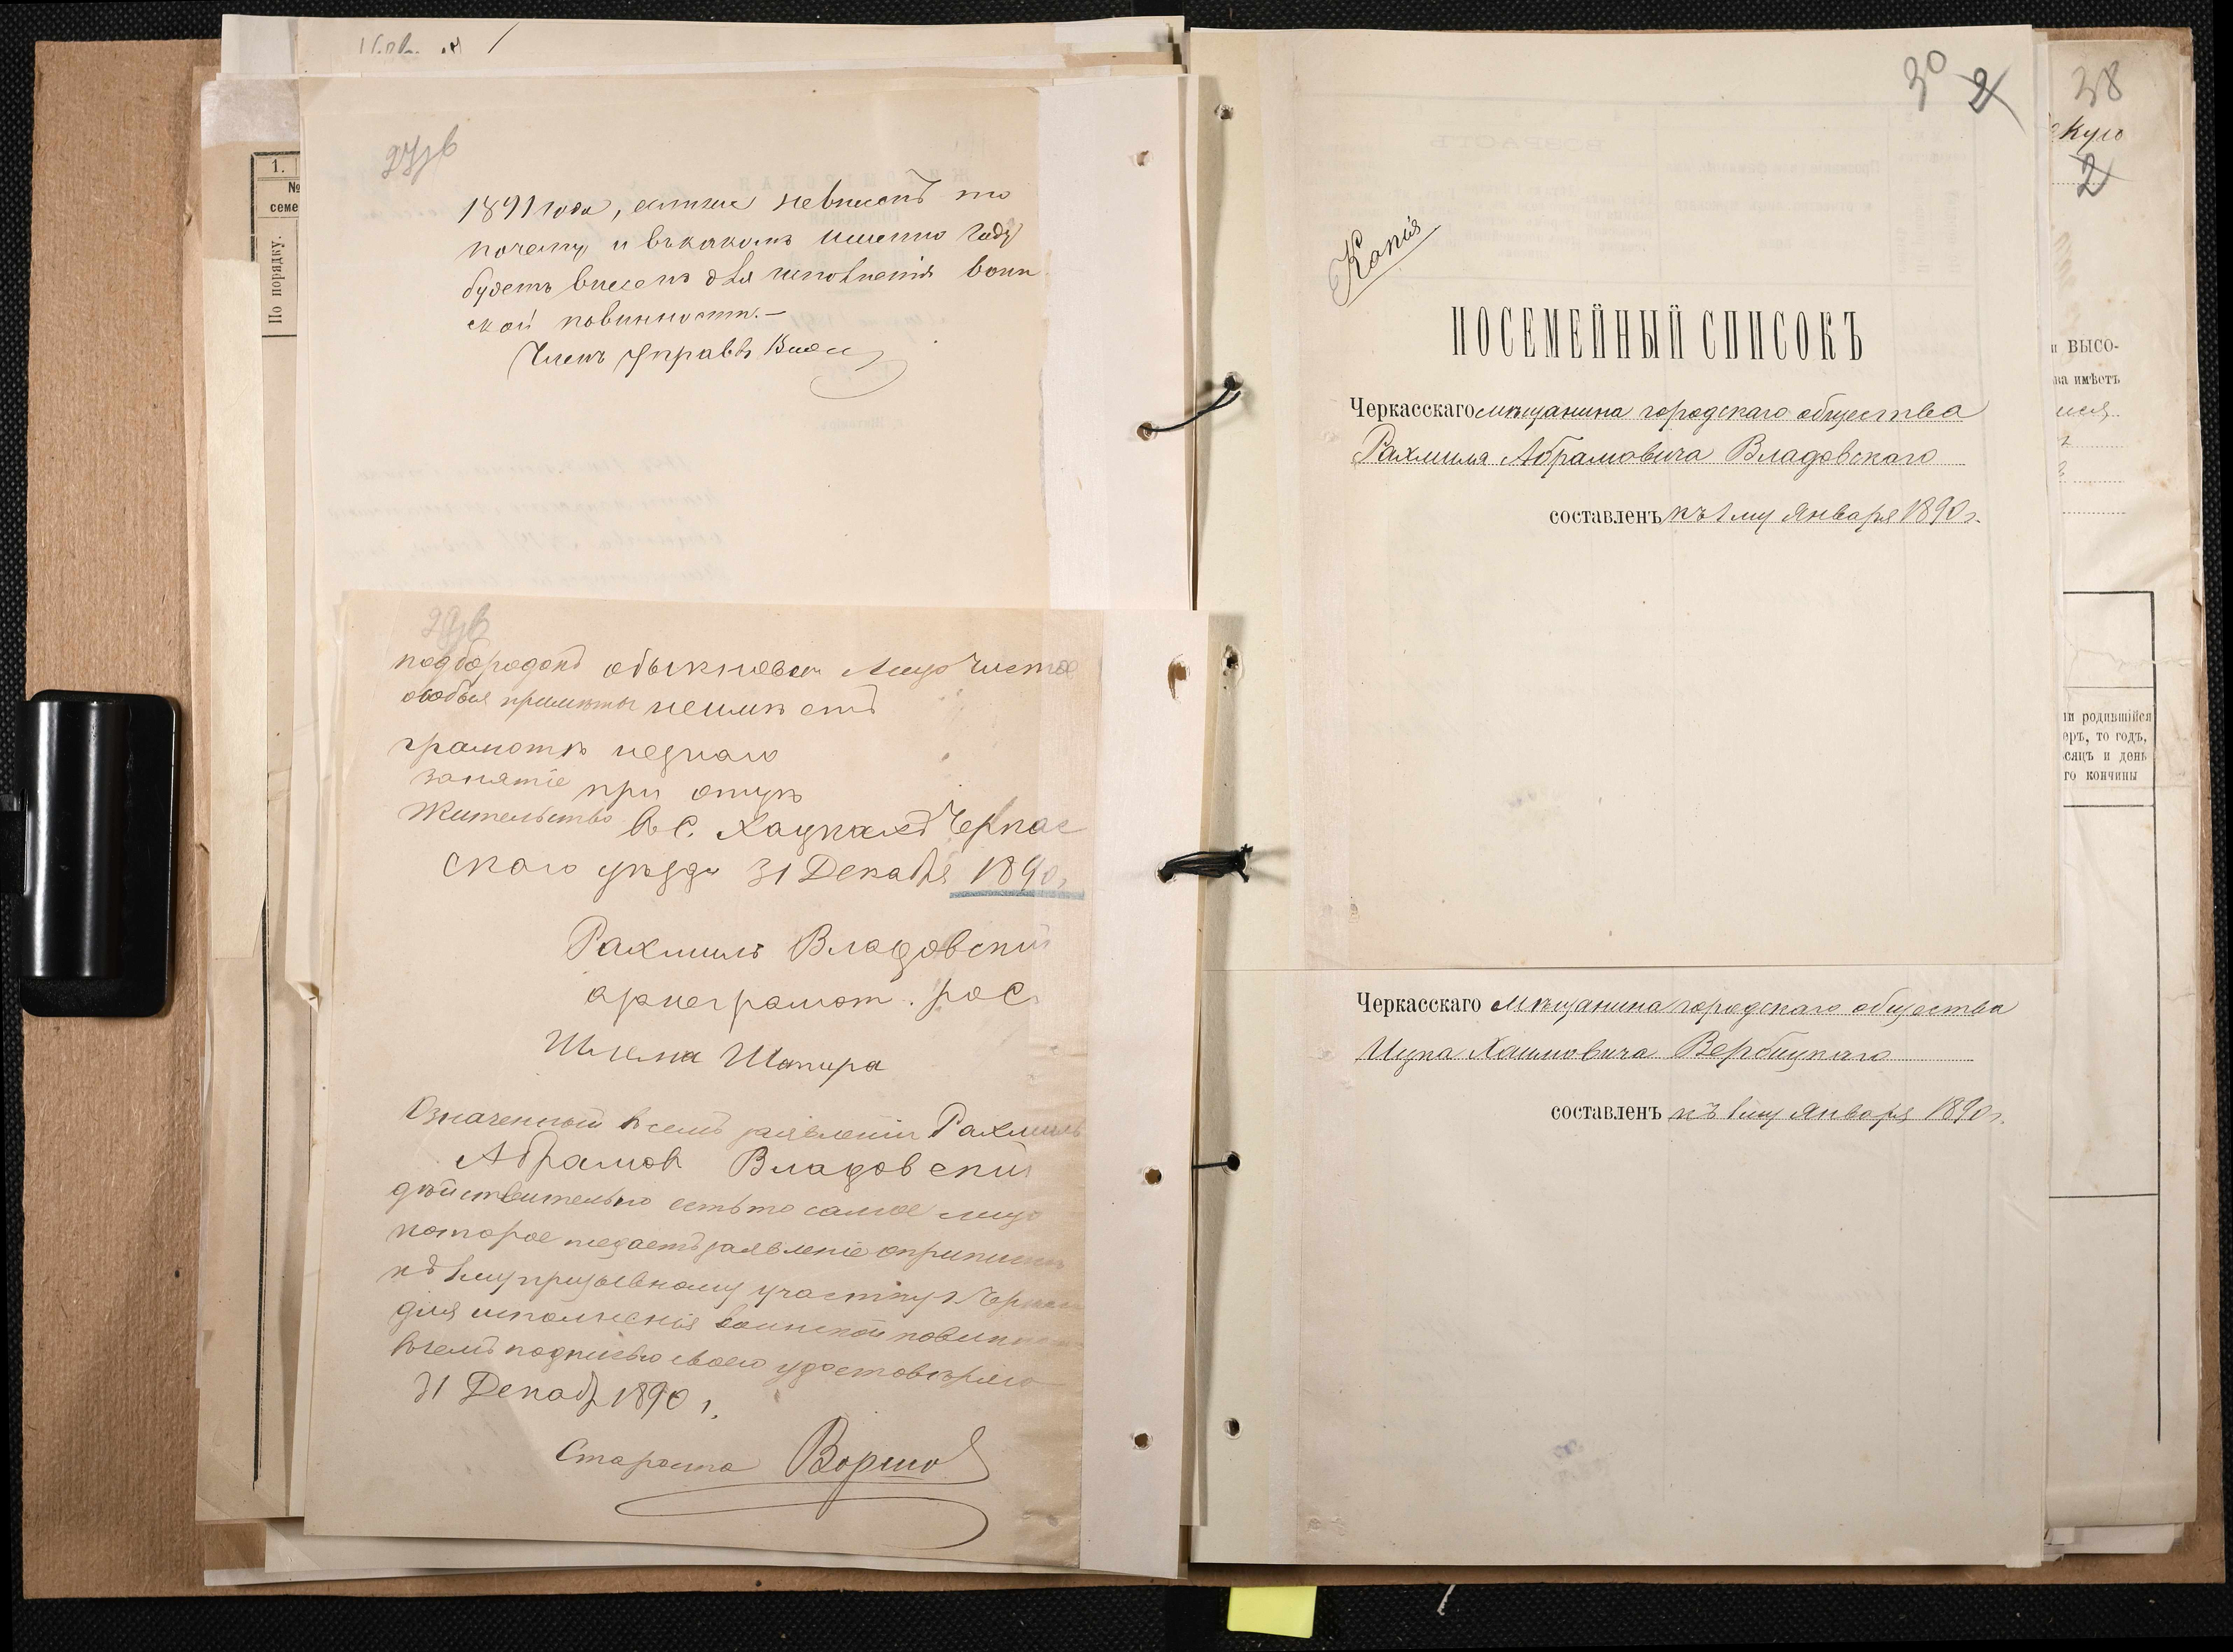 27об
1891 года, если же невнесенъ то
почему и въ какомъ именно году
будетъ внесенъ для исполненія воин
ской повинности.—
Членъ Управы
29об
подбородокъ обыкновен лицо чистое
особыя примѣты неимѣетъ
грамотѣ незнаю
занятіе при отцѣ
Жительство въ с. Хацкахъ Черкас
скаго уѣзда 31 Декабря 1890 г
Рахмиль Владовскій
а за неграмот. рос.
Шлема Шапира
Означенный въ семъ заявленіи Рахмиль
Абрамов Владовскій
дѣйствительно есть то самое лицо
которое подаетъ заявленіе о припискѣ
къ 1му призывному участку
для исполненія воинской повинности
въ чемъ подписью своею удостовѣряю
31 Декаб 1890 г.
Староста
1.
№
семе
По порядку.
30 2
Копія
ПОСЕМЕЙНЫЙ СПИСОКЪ
Черкасскаго мѣщанина городскаго общества
Рахмиля Абрамовича Владовскаго
составленъ къ 1му Января 1890 г.
Черкасскаго мѣщанина городскаго общества
Ицка Хаимовича Вербицкаго
составленъ къ 1му Января 1890 г.
38
2
и ВЫСО-
ва имѣетъ
ли родившійся
еръ, то годъ,
сяцъ и день
го кончины